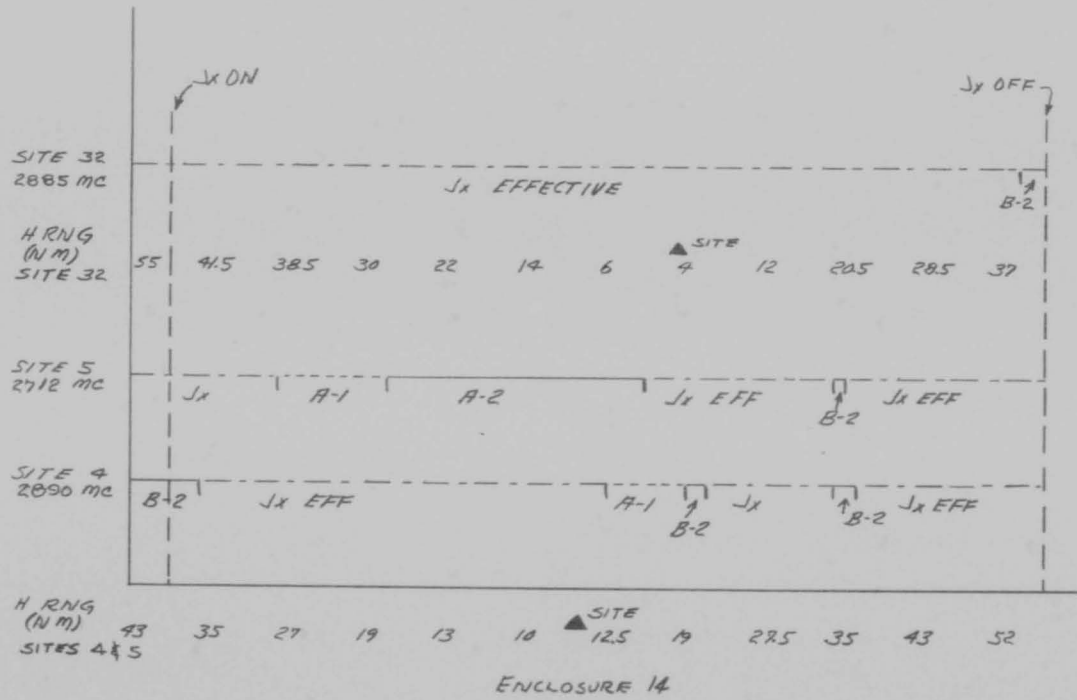 Jx ON
Jx OFF
SITE 32
2885 mc
Jx EFFECTIVE
B-2
H RNG
(NM)
SITE 32
▲ SITE
55 41.5 38.5 30 22 14 6 4 12 20.5 28.5 37
SITE 5
2712 mc
Jx A-1 A-2 Jx EFF B-2 Jx EFF
SITE 4
2890 mc
B-2 Jx EFF A-1 B-2 Jx B-2 Jx EFF
H RNG
(NM)
SITES 4 & 5
▲ SITE
43 35 27 19 13 10 12.5 19 27.5 35 43 52
ENCLOSURE 14